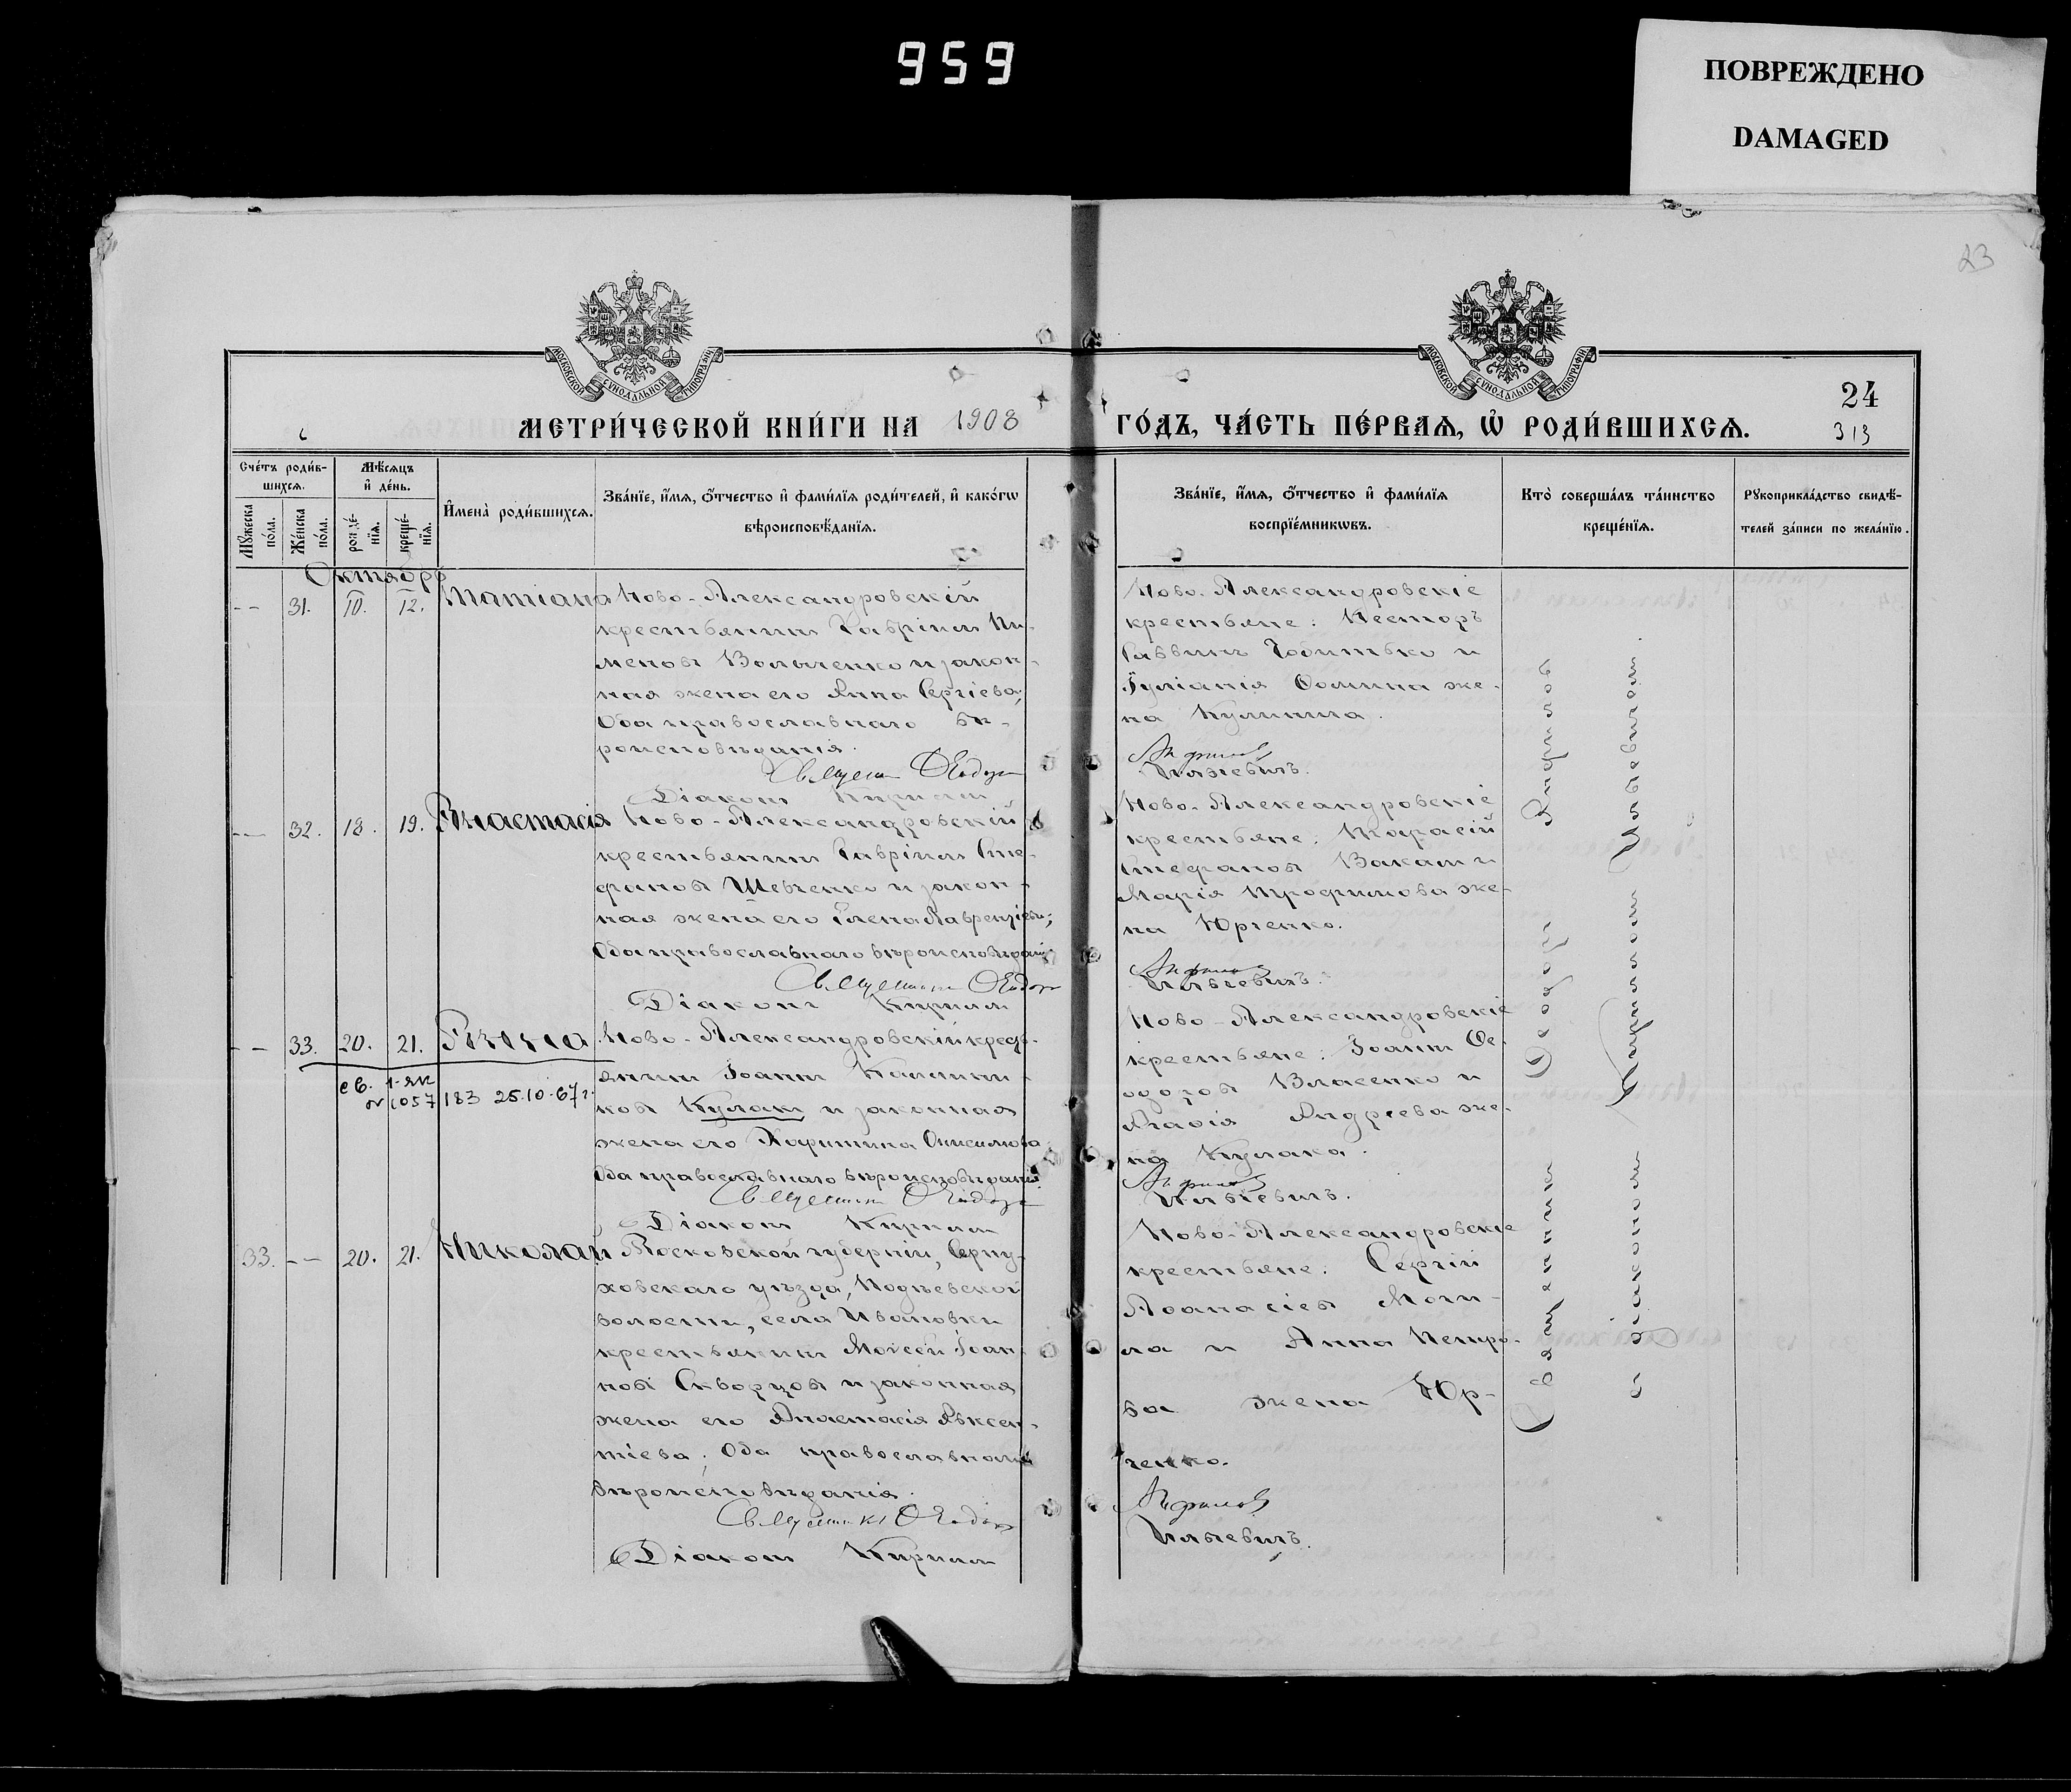 959
ПОВРЕЖДЕНО
DAMAGED
23
МОСКОВСКОЙ СѴНОДАЛЬНОЙ ТИПОГРАФІИ
МОСКОВСКОЙ СѴНОДАЛЬНОЙ ТИПОГРАФІИ
МЕТРИ́ЧЕСКОЙ КНИ́ГИ НА 1908
ГО́ДЪ, ЧА́СТЬ ПЕ́РВАѦ, Ѿ РОДИ́ВШИХСѦ.
24
313
Сче́тъ роди́в-
шихсѧ.
Мꙋ́жеска по́ла.
Же́нска по́ла.
Мѣ́сѧцъ
и҆ де́нь.
рожде́-
нїѧ.
креще́-
нїѧ.
И҆мена̀ роди́вшихсѧ.
Зва́нїе, и҆́мѧ, ѻ҆́тчество и҆ фами́лїѧ роди́телей, и҆ како́гѡ
вѣроисповѣ́данїѧ.
Зва́нїе, и҆́мѧ, ѻ҆́тчество и҆ фами́лїѧ
воспрїе́мникѡвъ.
Кто̀ соверша́лъ та́инство
креще́нїѧ.
Рꙋкоприкла́дство свидѣ́-
телей за́писи по жела́нїю.
Октябрь
-- 31. 10. 12. Татіана
Ново-Александровскій
крестьянинъ Гавріилъ Пи-
меновъ Волыченко и закон-
ная жена его Анна Сергіева;
Оба православнаго вѣ-
роисповѣданія.
Священ Ѳеодоръ
Діаконъ Кириллъ
Ново-Александровскіе
крестьяне: Несторъ
Саввинъ и
Іуліанія Ѳомина же-
на Кулинича.
Анфилов
Ильевичъ.
-- 32. 18. 19. Анастасія
Ново-Александровскій
крестьянинъ Гавріилъ Сте-
фановъ Шевченко и закон-
ная жена его Елена Лаврентіева;
Оба православнаго вѣроисповѣданія
Священникъ Ѳеодоръ
Діаконъ Кириллъ
Ново-Александровскіе
крестьяне: Тарасій
Стефановъ Вакал и
Марія Трофимова же-
на Юрченко.
Анфилов
Ильевичъ.
-- 33. 20. 21. Анна
св. 1-ЯИ
№ 1057183 25.10.67г.
Ново-Александровскій кресть-
янинъ Іоаннъ Каллини-
ковъ Кулакъ и законная
жена его Харитина Онисимова
Оба православнаго вѣроисповѣданія
Священникъ Ѳеодоръ
Діаконъ Кириллъ
Ново-Александровскіе
крестьяне: Іоаннъ Ѳе-
одоровъ Власенко и
Агафія Андреева же-
на Кулака.
Анфилов
Ильевичъ.
33. -- 20. 21. Николай
Московской губерніи, Серпу-
ховскаго уѣзда,
волости, села Ивановки
крестьянинъ Моисей Іоан-
новъ Скворцовъ и законная
жена его Анастасія Авксен-
тіева; Оба православнаго
вѣроисповѣданія.
Священникъ Ѳеодоръ
Діаконъ Кириллъ
Ново-Александровскіе
крестьяне: Сергій
Аѳанасіевъ Моги-
ла и Анна Петро-
ва жена Юр-
ченко.
Анфилов
Ильевичъ.
Священникъ Ѳеодоръ Анфиловъ
и діакономъ Кирилломъ Ильевичемъ.